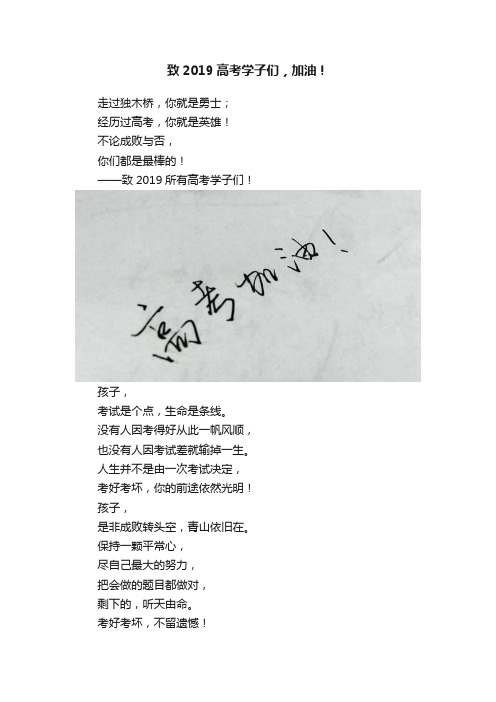 致2019高考学子们，加油！
走过独木桥，你就是勇士；
经历过高考，你就是英雄！
不论成败与否，
你们都是最棒的！
——致2019所有高考学子们！
高考加油！
孩子，
考试是个点，生命是条线。
没有人因考得好从此一帆风顺，
也没有人因考试差就输掉一生。
人生并不是由一次考试决定，
考好考坏，你的前途依然光明！
孩子，
是非成败转头空，青山依旧在。
保持一颗平常心，
尽自己最大的努力，
把会做的题目都做对，
剩下的，听天由命。
考好考坏，不留遗憾！